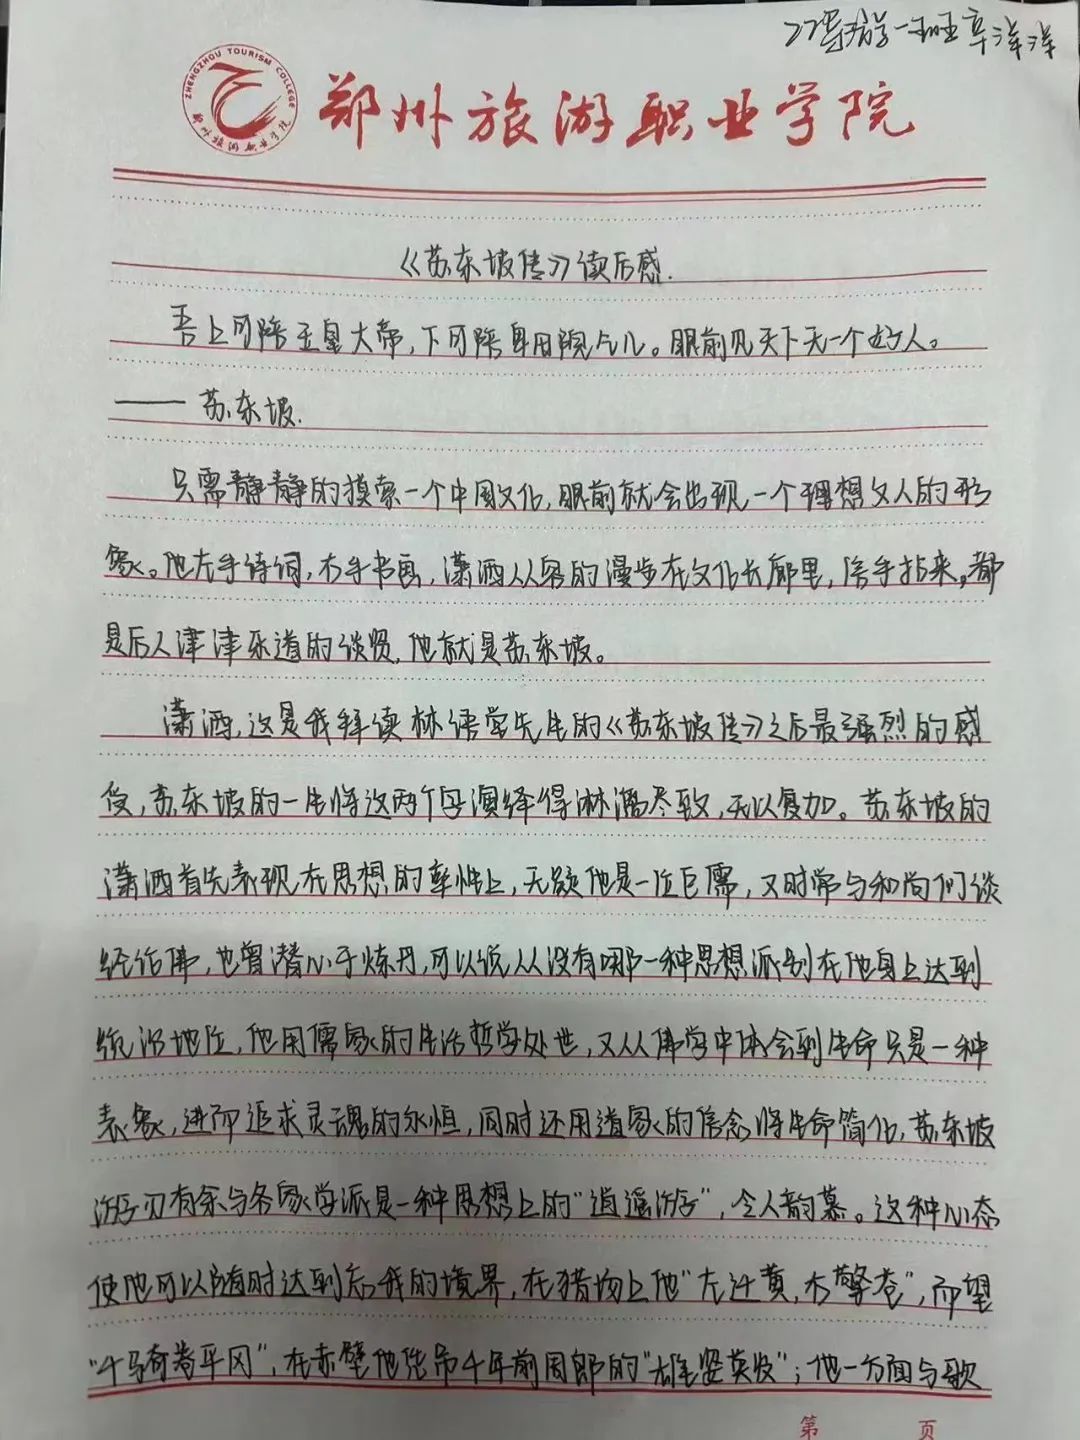 班辛洋洋
ZHENGZHOU TOURISM COLLEGE
郑州旅游职业学院
郑州旅游职业学院
《苏东坡传》读后感.
吾上可陪玉皇大帝,下可陪卑田院乞儿。眼前见天下无一个好人。
——苏东坡.
只需静静的摸索一个中国文化,眼前就会出现一个理想文人的形
象。他左手诗词,右手书画,潇洒从容的漫步在文化长廊里,信手拈来,都
是后人津津乐道的谈资,他就是苏东坡。
潇洒,这是我拜读林语堂先生的《苏东坡传》之后最强烈的感
受,苏东坡的一生将这两个字演绎得淋漓尽致,无以复加。苏东坡的
潇洒首先表现在思想的率性上,无疑他是一位巨儒,又时常与和尚们谈
经论佛,也曾潜心于炼丹,可以说从没有哪一种思想派别在他身上达到
统治地位,他用儒家的生活哲学处世,又从佛学中体会到生命只是一种
表象,进而追求灵魂的永恒,同时还用道家的信念将生命简化,苏东坡
游刃有余与各家学派是一种思想上的“逍遥游”,令人韵慕。这种心态
使他可以随时达到忘我的境界,在猎场上他“左迁黄,右擎苍”,而望
“千骑卷平冈”,在赤壁他凭吊千年前周郎的“雄姿英发”;他一方面与歌
第 页